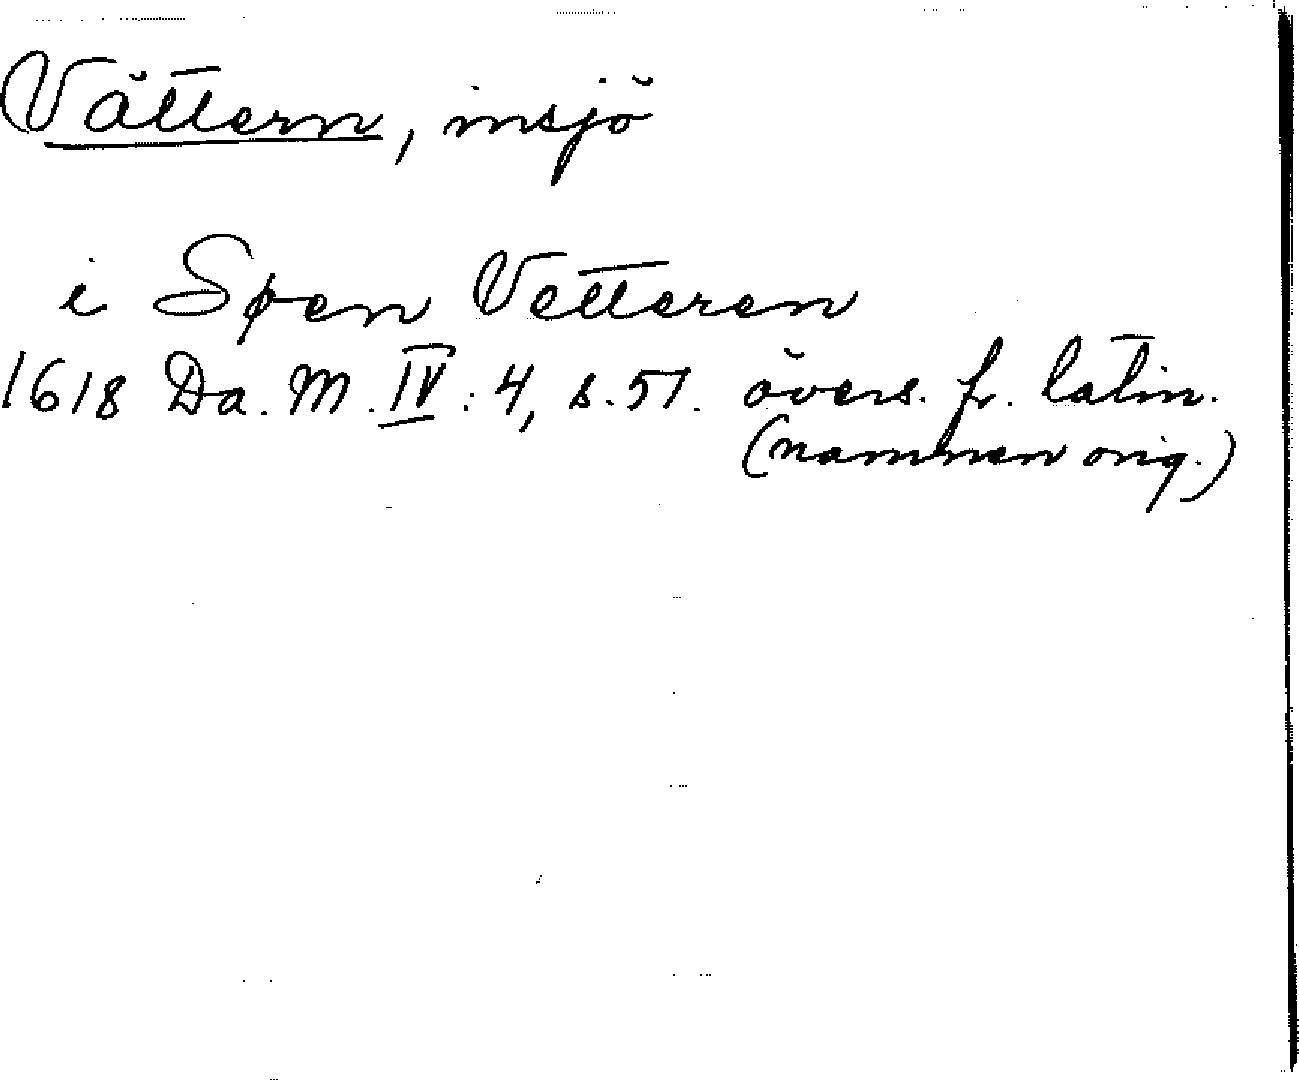 Vättern, insjö
i Spen Vetteren
1618 Da. M. IV: 4, s. 57. övers. fr. latin.
(namnen orig.)